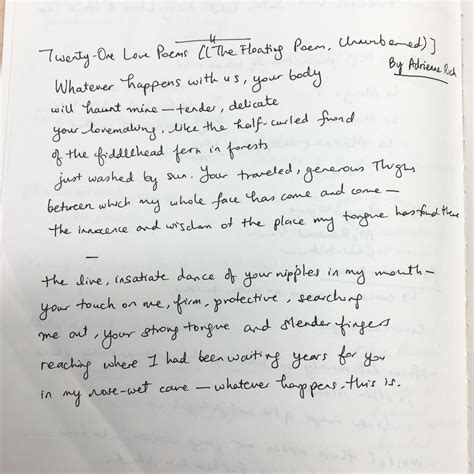 Twenty-One Love Poems ((The Floating Poem, Unnumbered)]
By Adrienne Rich
Whatever happens with us, your body
will haunt mine — tender, delicate
your lovemaking, like the half-curled frond
of the fiddlehead fern in forests
just washed by sun. Your traveled, generous thighs
between which my whole face has come and come —
the innocence and wisdom of the place my tongue has found there
—
the live, insatiate dance of your nipples in my mouth —
your touch on me, firm, protective, searching
me out, your strong tongue and slender fingers
reaching where I had been waiting years for you
in my rose-wet cave — whatever happens, this is.